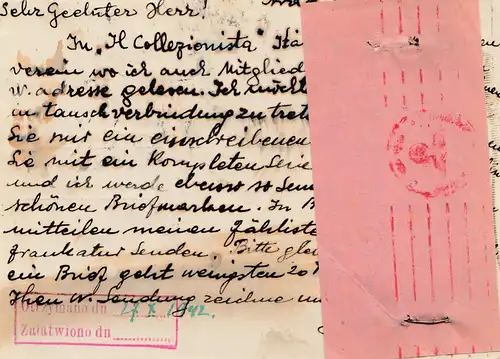 Sehr Geehrter Herr!
In "Il Collezionista" Itá
verein wo ich auch Mitglied
w. adresse gelesen. Ich möcht
in tauschverbindung zu tret
Sie mir ein einschreibenen
Sie mit ein Kompleten Serie
und ich werde ebenso so Sen
schönen Briefmarken. In B
mitteilen meinen fähliste
frankatur Senden. Bitte glei
ein Brief geht wenigsten 20
Ihen w. Sendung zeichne
Otrzymano dn 27 X 1942.
Załatwiono dn